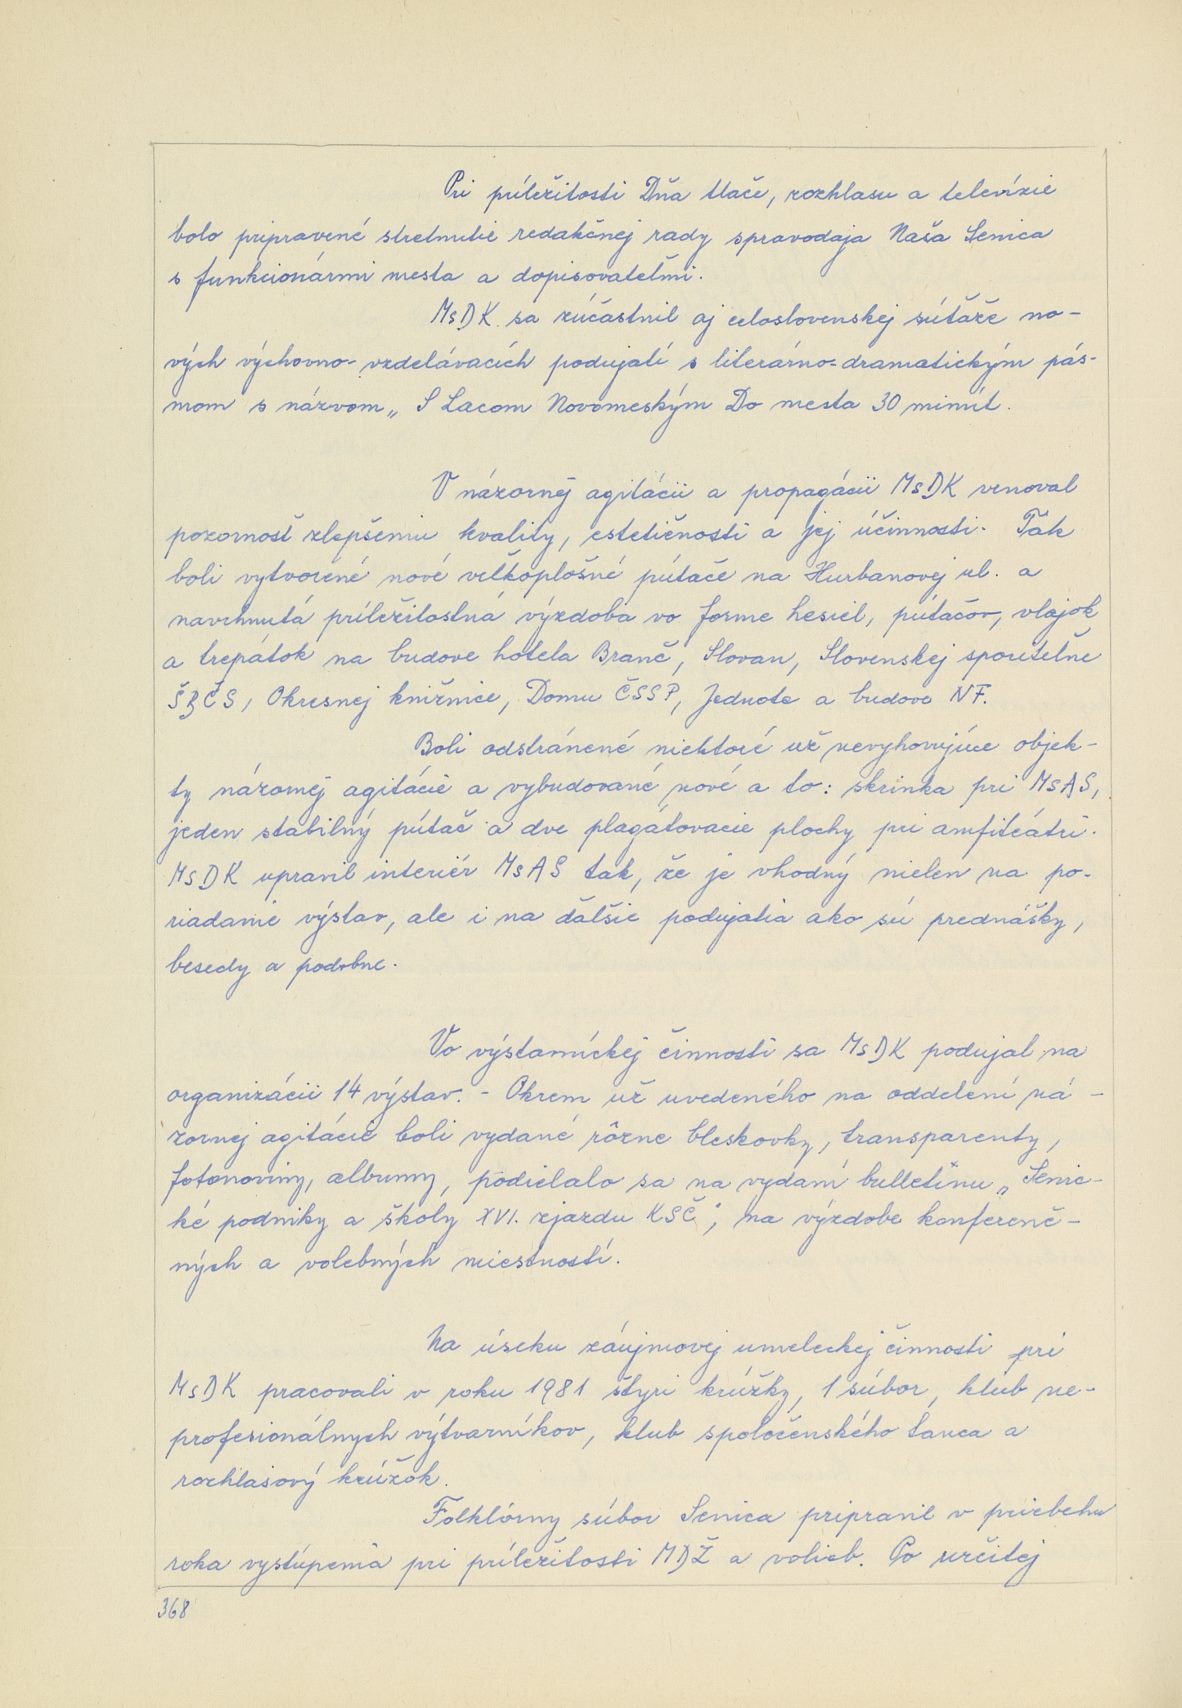 Pri príležitosti Dňa tlače, rozhlasu a televízie
bolo pripravené stretnutie redakčnej rady spravodaja Naša Senica
s funkcionármi mesta a dopisovateľmi.
MsDK sa zúčastnil aj celoslovenskej súťaže no-
vých výchovno-vzdelávacích podujatí s literárno-dramatickým pás-
mom s názvom „ S Lacom Novomeským Do mesta 30 minút.
V názornej agitácii a propagácii MsDK venoval
pozornosť zlepšeniu kvality, estetičnosti a jej účinnosti. Tak
boli vytvorené nové veľkoplošné pútače na Hurbanovej ul. a
navrhnutá príležitostná výzdoba vo forme hesiel, pútačov, vlajok
a trepátok na budove hotela Branč, Slovan, Slovenskej sporiteľne
ŠBČS, Okresnej knižnice, Domu ČSSP, Jednote a budove NF.
Boli odstránené niektoré už nevyhovujúce objek-
ty názornej agitácie a vybudované nové a to: skrinka pri MsAS,
jeden stabilný pútač a dve plagátovacie plochy pri amfiteátri.
MsDK upravil interiér MsAS tak, že je vhodný nielen na po-
riadanie výstav, ale i na ďalšie podujatia ako sú prednášky,
besedy a podobne.
Vo výstavníckej činnosti sa MsDK podujal na
organizácii 14 výstav. - Okrem už uvedeného na oddelení ná-
zornej agitácie boli vydané rôzne bleskovky, transparenty,
fotonoviny, albumy, podielalo sa na vydaní bulletinu „ Senic-
ké podniky a školy XVI. zjazdu KSČ", na výzdobe konferenč-
ných a volebných miestností.
Na úseku záujmovej umeleckej činnosti pri
MsDK pracovali v roku 1981 štyri krúžky, 1 súbor, klub ne-
profesionálnych výtvarníkov, klub spoločenského tanca a
rozhlasový krúžok.
Folklórny súbor Senica pripravil v priebehu
roka vystúpenia pri príležitosti MDŽ a volieb. Po určitej
368